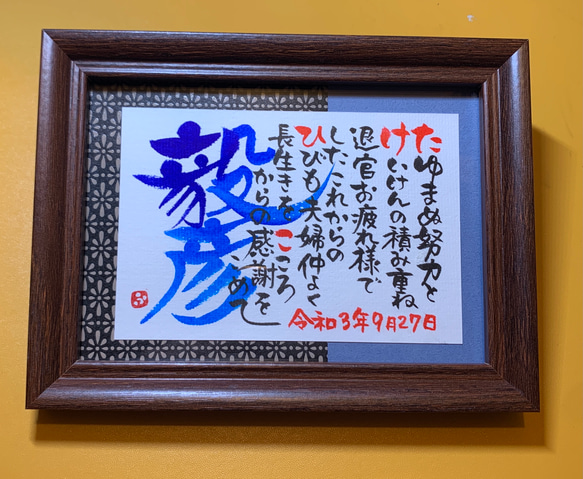 たゆまぬ努力と
けいけんの積み重ね
退官お疲れ様で
したこれからの
ひびも夫婦仲よく
長生きをこころ
からの感謝を
こめて
令和3年9月27日
毅彦